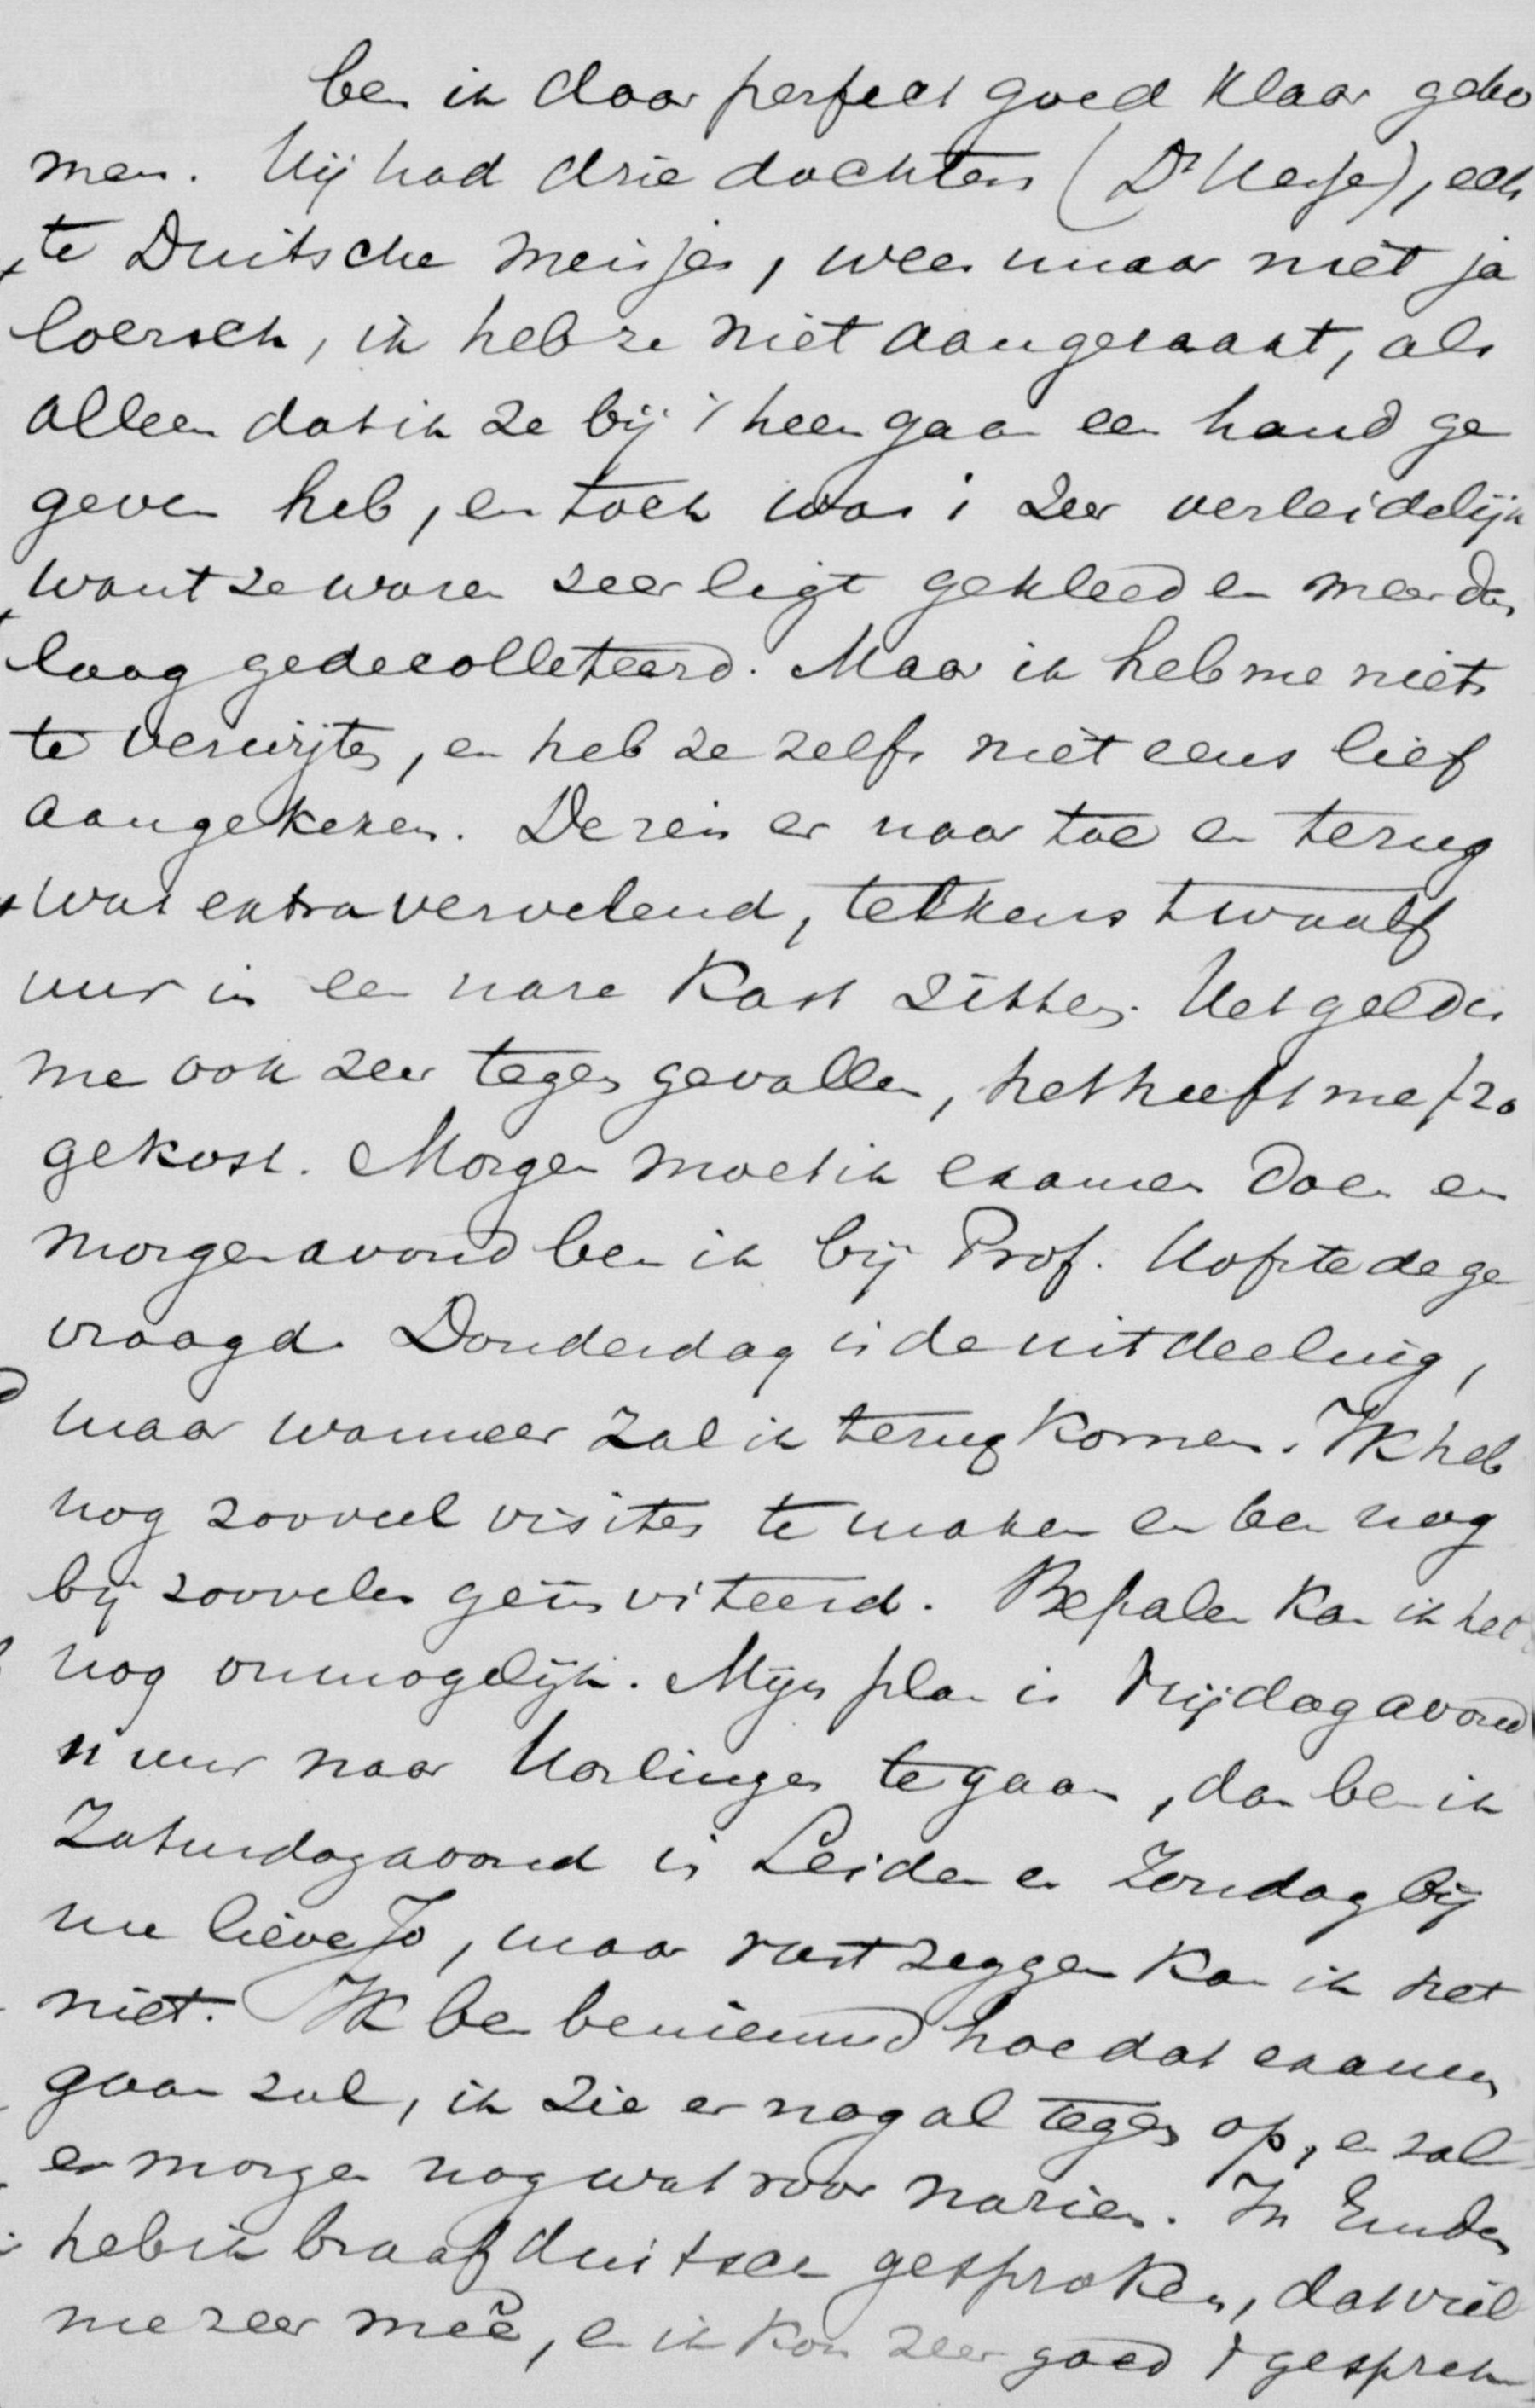 ben ik daar perfect goed klaar geko
men. Hij had drie dochters (Dr Hesse), ech
te Duitsche meisjes, wees maar niet ja
loersch, ik heb ze niet aangeraakt, als
alleen dat ik ze bij 't heengaan een hand ge
geven heb, en toch was 't zeer verleidelijk
want ze waren zeer ligt gekleed en meer dan
laag gedecolleteerd. Maar ik heb me niets
te verwijten, en heb ze zelfs niet eens lief
aangekeken. De reis er naar toe en terug
was extra vervelend, telkens twaalf
uur in een nare kast zitten. Het geld is
me ook zeer tegen gevallen, het heeft me f 20
gekost. Morgen moet ik examen doen en
morgenavond ben ik bij Prof. Hofstede ge
vraagd. Donderdag is de uitdeeling,
maar wanneer zal ik terug komen. Ik heb
nog zooveel visites te maken en ben nog
bij zoovelen geïnviteerd. Bepalen kan ik het
nog onmogelijk. Mijn plan is Vrijdagavond
11 uur naar Harlingen te gaan, dan ben ik
Zaturdagavond in Leiden en Zondag bij
me lieve Jo, maar vast zeggen kan ik het
niet. Ik ben benieuwd hoe dat examen
gaan zal, ik zie er nog al tegen op, en zal
er morgen nog wat voor nazien. In Emden
heb ik braaf duitsch gesproken, dat viel
me zeer meê, en ik kon zeer goed 't gesprek